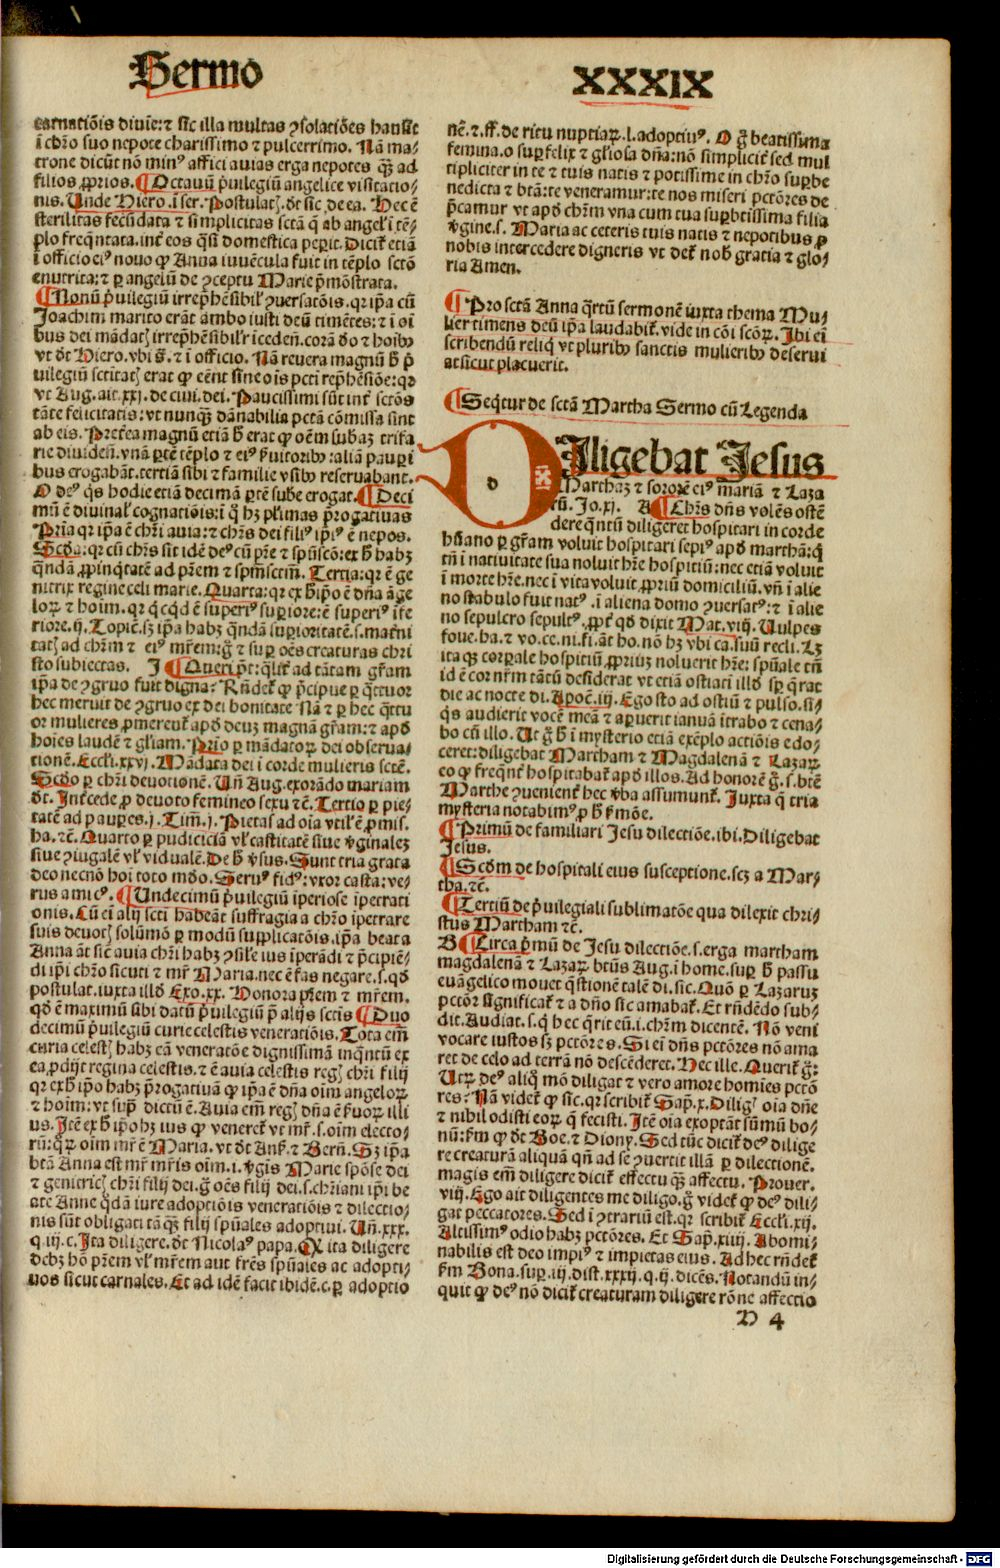 Sermo
XXXIX
carnatiõis diuīe: ⁊ sic illa multas ꝯsolatiões hausit
ī chr̄o suo nepote charissimo ⁊ pulcerrimo. Nā ma⸗
trone dicūt nō minꝰ affici auias erga nepotes q̄ꝫ ad
filios ꝓprios. ¶ Octauū p̄uilegiū angelice visitatio⸗
nis. Unde Hiero. ī ser. Postulatꝭ. d̄t sic de ea. Hec ē
sterilitas fecūdata ⁊ simplicitas sctā q̄ ab angelꝭ ī tē⸗
plo freq̄ntata. int̄ eos q̄si domestica peꝑit. Dicit̄ etiā
ī officio eiꝰ nouo ꝙ Anna iuuēcula fuit in tēplo sctō
enutrita: ⁊ ꝑ angelū de ꝯceptu Marie p̄mōstrata.
¶ Nonū p̄uilegiū irrep̄hēsibilꝭ ꝯuersatōis. qꝛ ip̄a cū
Joachim marito erāt ambo iusti deū timētes: ⁊ ī oī
bus dei mādatꝭ irrep̄hēsibilꝭr īcedētes. corā deo ⁊ hoībꝰ
vt d̄t Hiero. vbi s̄. ⁊ ī officio. Nā reuera magnū h̄ p̄
uilegiū sctitatꝭ erat ꝙ eēnt sine oīs pcti rep̄hēsiōe: qꝛ
vt Aug. ait. xxj. de ciui. dei. Paucissimi sūt int̄ sctōs
tāte felicitatis: vt nunq̄ꝫ dānabilia pctā cōmissa sint
ab eis. Pret̄ea magnū etiā h̄ erat ꝙ oēm subaꝫ trifa
rie diuidēt. vnā ꝑtē tēplo ⁊ eiꝰ ẜuitoribꝰ: aliā pauꝑi
bus erogabāt. tertiā sibi ⁊ familie vsibꝰ reseruabant.
O deꝰ q̄s hodie etiā decimā ꝑtē sube erogat. ¶ Deci
mū ē diuinalꝭ cognatiōis: ī q̄ hꝫ plꝭimas p̄rogatiuas
Pria qꝛ ip̄a ē chr̄i auia: ⁊ chr̄s dei filiꝰ ip̄iꝰ ē nepos.
Scd̄a: qꝛ cū chr̄s sit idē deꝰ cū pr̄e ⁊ spūscto: ex h̄ habꝫ
q̄ndā ꝓpinq̄tatē ad pr̄em ⁊ spm̄sctm̄. Tertia: qꝛ ē ge
nitrix regine celi marie. Quarta: qꝛ ex h̄ ip̄o ē dn̄a āge
loꝝ ⁊ hoim̄. qꝛ q̄cq̄d ē superiꝰ suꝑiore: ē superiꝰ īfe
riore. ij. Topic. sꝫ ip̄a habꝫ q̄ndā suꝑioritatē. s. mat̄ni
tatꝭ ad chr̄m ⁊ eiꝰ mr̄em: g̊ ⁊ suꝑ oēs creaturas chri
sto subiectas. J ¶ Querit̄ pt̄: q̄lit̄ ad tātam gr̄am
ip̄a de ꝯgruo fuit digna? Rn̄det̄ ꝙ p̄cipue ꝑ q̄ttuor
hec meruit de ꝯgruo ex dei bonitate Nā ⁊ ꝑ hec q̄ttu
or mulieres ꝓmerent̄ apd̄ deuꝫ magnā gr̄am: ⁊ apd̄
hoīes laudē ⁊ gl̄iam. Prīo ꝑ mādatoꝝ dei obserua⸗
tionē. Eccli. xxvj. Mādata dei ī corde mulieris sctē.
Scd̄o ꝑ chr̄i deuotionē. Un̄ Aug. exorādo mariam
d̄t. Int̄cede ꝓ deuoto femineo sexu ⁊c̄. Tertio ꝑ pie⸗
tatē ad pauꝑes. j. Tim̄. j. Pietas ad oīa vtilꝭ ē ꝓmis.
ha. ⁊c̄. Quarto ꝑ pudiciciā vl̄ castitatē siue v̄ginalē
siue ꝯiugalē vl̄ vidualē. De h̄ v̄sus. Sunt tria grata
deo necnō hoī toto mūdo. Seruꝰ fidꝰ: vxor casta: ve⸗
rus amicꝰ. ¶ Undecimū p̄uilegiū īperiose īpetrati
onis. Cū eī alij scti habeāt suffragia a chr̄o īpetrare
suis deuotꝭ solūmō ꝑ modū supplicatōis. ip̄a beata
Anna āt sic auia chr̄i habꝫ ꝯsilꝭe ius īperādi ⁊ p̄cipiē⸗
di ip̄i chr̄o sicuti ⁊ mr̄ Maria. nec ē fas negare. s. qd̄
postulat. iuxta illd̄ Exo. xx. Honora pr̄em ⁊ mr̄em.
qd̄ ē maximū sibi datū p̄uilegiū p̄ alijs sctis ¶ Duo
decimū p̄uilegiū curie celestis veneratiōis. Tota em̄
curia celestꝭ habꝫ eā veneratōe dignissimā inq̄ntū ex
ea ꝓdijt regina celestis. ⁊ ē auia celestis regꝭ chr̄i filij
qꝛ ex h̄ ip̄o habꝫ p̄rogatiuā ꝙ ip̄a ē dn̄a oim angeloꝝ
⁊ hoim̄: vt sup̄ dictū ē. Auia em̄ regꝭ dn̄a ē ẜuoꝝ illi
us. Itē ex h̄ ip̄o hꝫ ius ꝙ veneret̄ vt mr̄. s. oim electo⸗
rū: q̄ꝛ oim mr̄ ē Maria. vt d̄t Anẜ. ⁊ Bern̄. Sꝫ ip̄a
btā Anna est mr̄ mr̄is oim. i. v̄gīs Marie spōse dei
⁊ genitricꝭ chr̄i filij dei. g̊ oēs filij dei. s. chr̄iani ip̄i be
ate Anne q̄dā iure adoptiōis veneratiōis ⁊ dilectio⸗
nis sūt obligati tā q̄ꝫ filij spūales adoptiui. Un̄. xxx.
q. iij. c. Ita diligere. d̄t Nicolaꝰ papa. Qꝛ ita diligere
debꝫ hō pr̄em vl̄ mr̄em aut fr̄es spūales ac adopti⸗
uos sicut carnales. Et ad idē facit ibidē. c. ꝑ adoptio
nē. ⁊. ff. de ritu nuptiaꝝ. l. adoptiuꝰ. O g̊ beatissima
femina. o suꝑfelix ⁊ gl̄iosa dn̄a: nō simplicit̄ sed mul
tipliciter in te ⁊ tuis natis ⁊ potissime in chr̄o suꝑbe
nedicta ⁊ btā: te veneramur: te nos miseri pctōres de
p̄camur vt apd̄ chr̄m vna cum tua suꝑbtissima filia
v̄gine. s. Maria ac ceteris tuis natis ⁊ nepotibus ꝓ
nobis intercedere digneris vt det̄ nob̄ gratia ⁊ glo⸗
ria Amen.
¶ Pro sctā Anna q̄rtū sermonē iuxta thema Mu⸗
lier timens deū ip̄a laudabit̄. vide in cōi scōꝝ. Ibi eī
scribendū reliq̄ vt pluribꝰ sanctis mulieribꝰ deserui
at sicut placuerit.
¶ Seq̄tur de sctā Martha Sermo cū Legenda
d
Iligebat Jesus
Marthaꝫ ⁊ sororē eiꝰ mariā ⁊ Laza
rū. Jo. xj. A ¶ Chr̄s dn̄s volēs ostē
dere q̄ntū diligeret hospitari in corde
hūano ꝑ gr̄am voluit hospitari sepiꝰ apd̄ marthā: q̄
tn̄ ī natiuitate sua noluit hr̄e hospitiū: nec etiā voluit
ī morte hr̄e. nec ī vita voluit ꝓpriū domiciliū. vn̄ ī alie
no stabulo fuit natꝰ. ī aliena domo ꝯuersatꝰ: ⁊ ī alie
no sepulcro sepultꝰ. ꝓpt̄ qd̄ dixit Mat. viij. Uulpes
foue. ha. ⁊ vo. ce. ni. fi. āt ho. nō hꝫ vbi ca. suū recli. Lꝫ
itaqꝫ corꝑale hospitiū ꝓpriuꝫ noluerit hr̄e: spūale tn̄
id ē cor nr̄m tātū desiderat vt etiā ostiatī illd̄ sꝑ q̄rat
die ac nocte di. Apoc̄. iij. Ego sto ad ostiū ⁊ pulso. si⸗
q̄s audierit vocē meā ⁊ aꝑuerit ianuā ītrabo ⁊ cena⸗
bo cū illo. Ut g̊ h̄ ī mysterio etiā exēplo actiōis edo⸗
ceret: diligebat Martham ⁊ Magdalenā ⁊ Lazaꝝ
eo ꝙ freq̄nt̄ hospitabat̄ apd̄ illos. Ad honorē g̊. s. btē
Marthe ꝯuenient̄ hec v̄ba assumunt̄. Juxta q̄ tria
mysteria notabimꝰ ꝑ h̄ ẜmōe.
¶ Primū de familiari Jesu dilectiōe. ibi. Diligebat
Jesus.
¶ Scd̄m de hospitali eius susceptione. scꝫ a Mar⸗
tha. ⁊c̄.
¶ Tertiū de p̄uilegiali sublimatōe qua dilexit chri⸗
stus Martham ⁊c̄.
B ¶ Circa p̄mū de Jesu dilectiōe. s. erga martham
magdalenā ⁊ Lazaꝝ btūs Aug. ī home. suꝑ h̄ passu
euāgelico mouet q̄stionē talē di. sic. Quō ꝑ Lazaruꝫ
pctōr significat̄ ⁊ a dn̄o sic amabat̄. Et rn̄dēdo sub⸗
dit. Audiat. s. q̄ hec q̄rit eū. i. chr̄m dicentē. Nō veni
vocare iustos sꝫ pctōres. Si eī dn̄s pctōres nō ama
ret de celo ad terrā nō descēderet. Hec ille. Querit̄ g̊:
Utꝝ deꝰ aliq̄ mō diligat ⁊ vero amore homīes pctō
res? Nā videt̄ ꝙ sic. qꝛ scribit̄ Sap̄. x. Diligꝭ oīa dn̄e
⁊ nihil odisti eoꝝ q̄ fecisti. Itē oīa exoptāt sūmū bo⸗
nū: ẜm ꝙ d̄t Boe. ⁊ Diony. Sed tūc dicit̄ deꝰ dilige
re creaturā aliquā qn̄ ad se ꝯuertit illā ꝑ dilectionē.
magis em̄ diligere dicit̄ effectu q̄ꝫ affectu. Prouer.
viij. Ego ait diligentes me diligo. g̊ videt̄ ꝙ deꝰ dili⸗
gat peccatores. Sed ī ꝯtrariū est. qꝛ scribit̄ Eccli. xij.
Altissimꝰ odio habꝫ pctōres. Et Sap̄. xiiij. Abomi⸗
nabilis est deo impiꝰ ⁊ impietas eius. Ad hec rn̄det̄
ẜm Bona. suꝑ. iij. dist. xxxij. q. ij. dicēs. Notandū in⸗
quit ꝙ deꝰ nō dicit̄ creaturam diligere rōne affectio
D 4
Digitalisierung gefördert durch die Deutsche Forschungsgemeinschaft - DFG